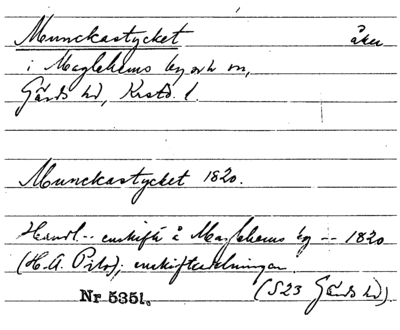 Munckastycket åker
i Maglehems by och sn,
Gärds hd, Krstd. l.
Munckastycket 1820.
Handl. -- enskifte å Maglehems by -- 1820
(H. A. ); enskiftesdelningen.
(S23 Gärds hd).
Nr 5351.